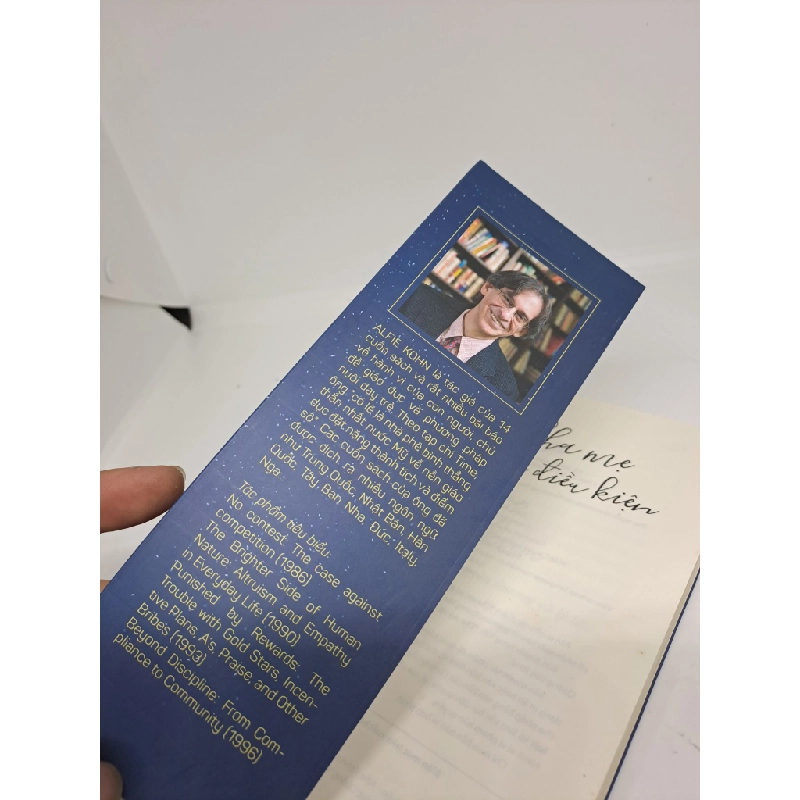 ALFIE KOHN là tác giả của 14
cuốn sách và rất nhiều bài báo
về hành vi của con người, chủ
đề giáo dục và phương pháp
nuôi dạy trẻ. Theo tạp chí Time,
ông "có lẽ là nhà phê bình thẳng
thắn nhất nước Mỹ về nền giáo
dục đặt nặng thành tích và điểm
số". Các cuốn sách của ông đã
được dịch ra nhiều ngôn ngữ
như Trung Quốc, Nhật Bản, Hàn
Quốc, Tây Ban Nha, Đức, Italy,
Nga...
Tác phẩm tiêu biểu:
No Contest: The case against
competition (1986)
The Brighter Side of Human
Nature: Altruism and Empathy
in Everyday Life (1990)
Punished by Rewards: The
Trouble with Gold Stars, Incen-
tive Plans, A's, Praise, and Other
Bribes (1993)
Beyond Discipline: From Com-
pliance to Community (1996)
mẹ
điều kiện